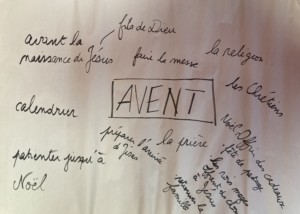 fils de Dieu
avant la
naissance de Jésus
faire la messe
la religion
les Chrétiens
AVENT
calendrier
préparer l'arrivée
d'Jésus
la prière
patienter jusqu'à
Noël
Noël
des cadeaux
fête de partage
les rois mages
à Jésus
famille